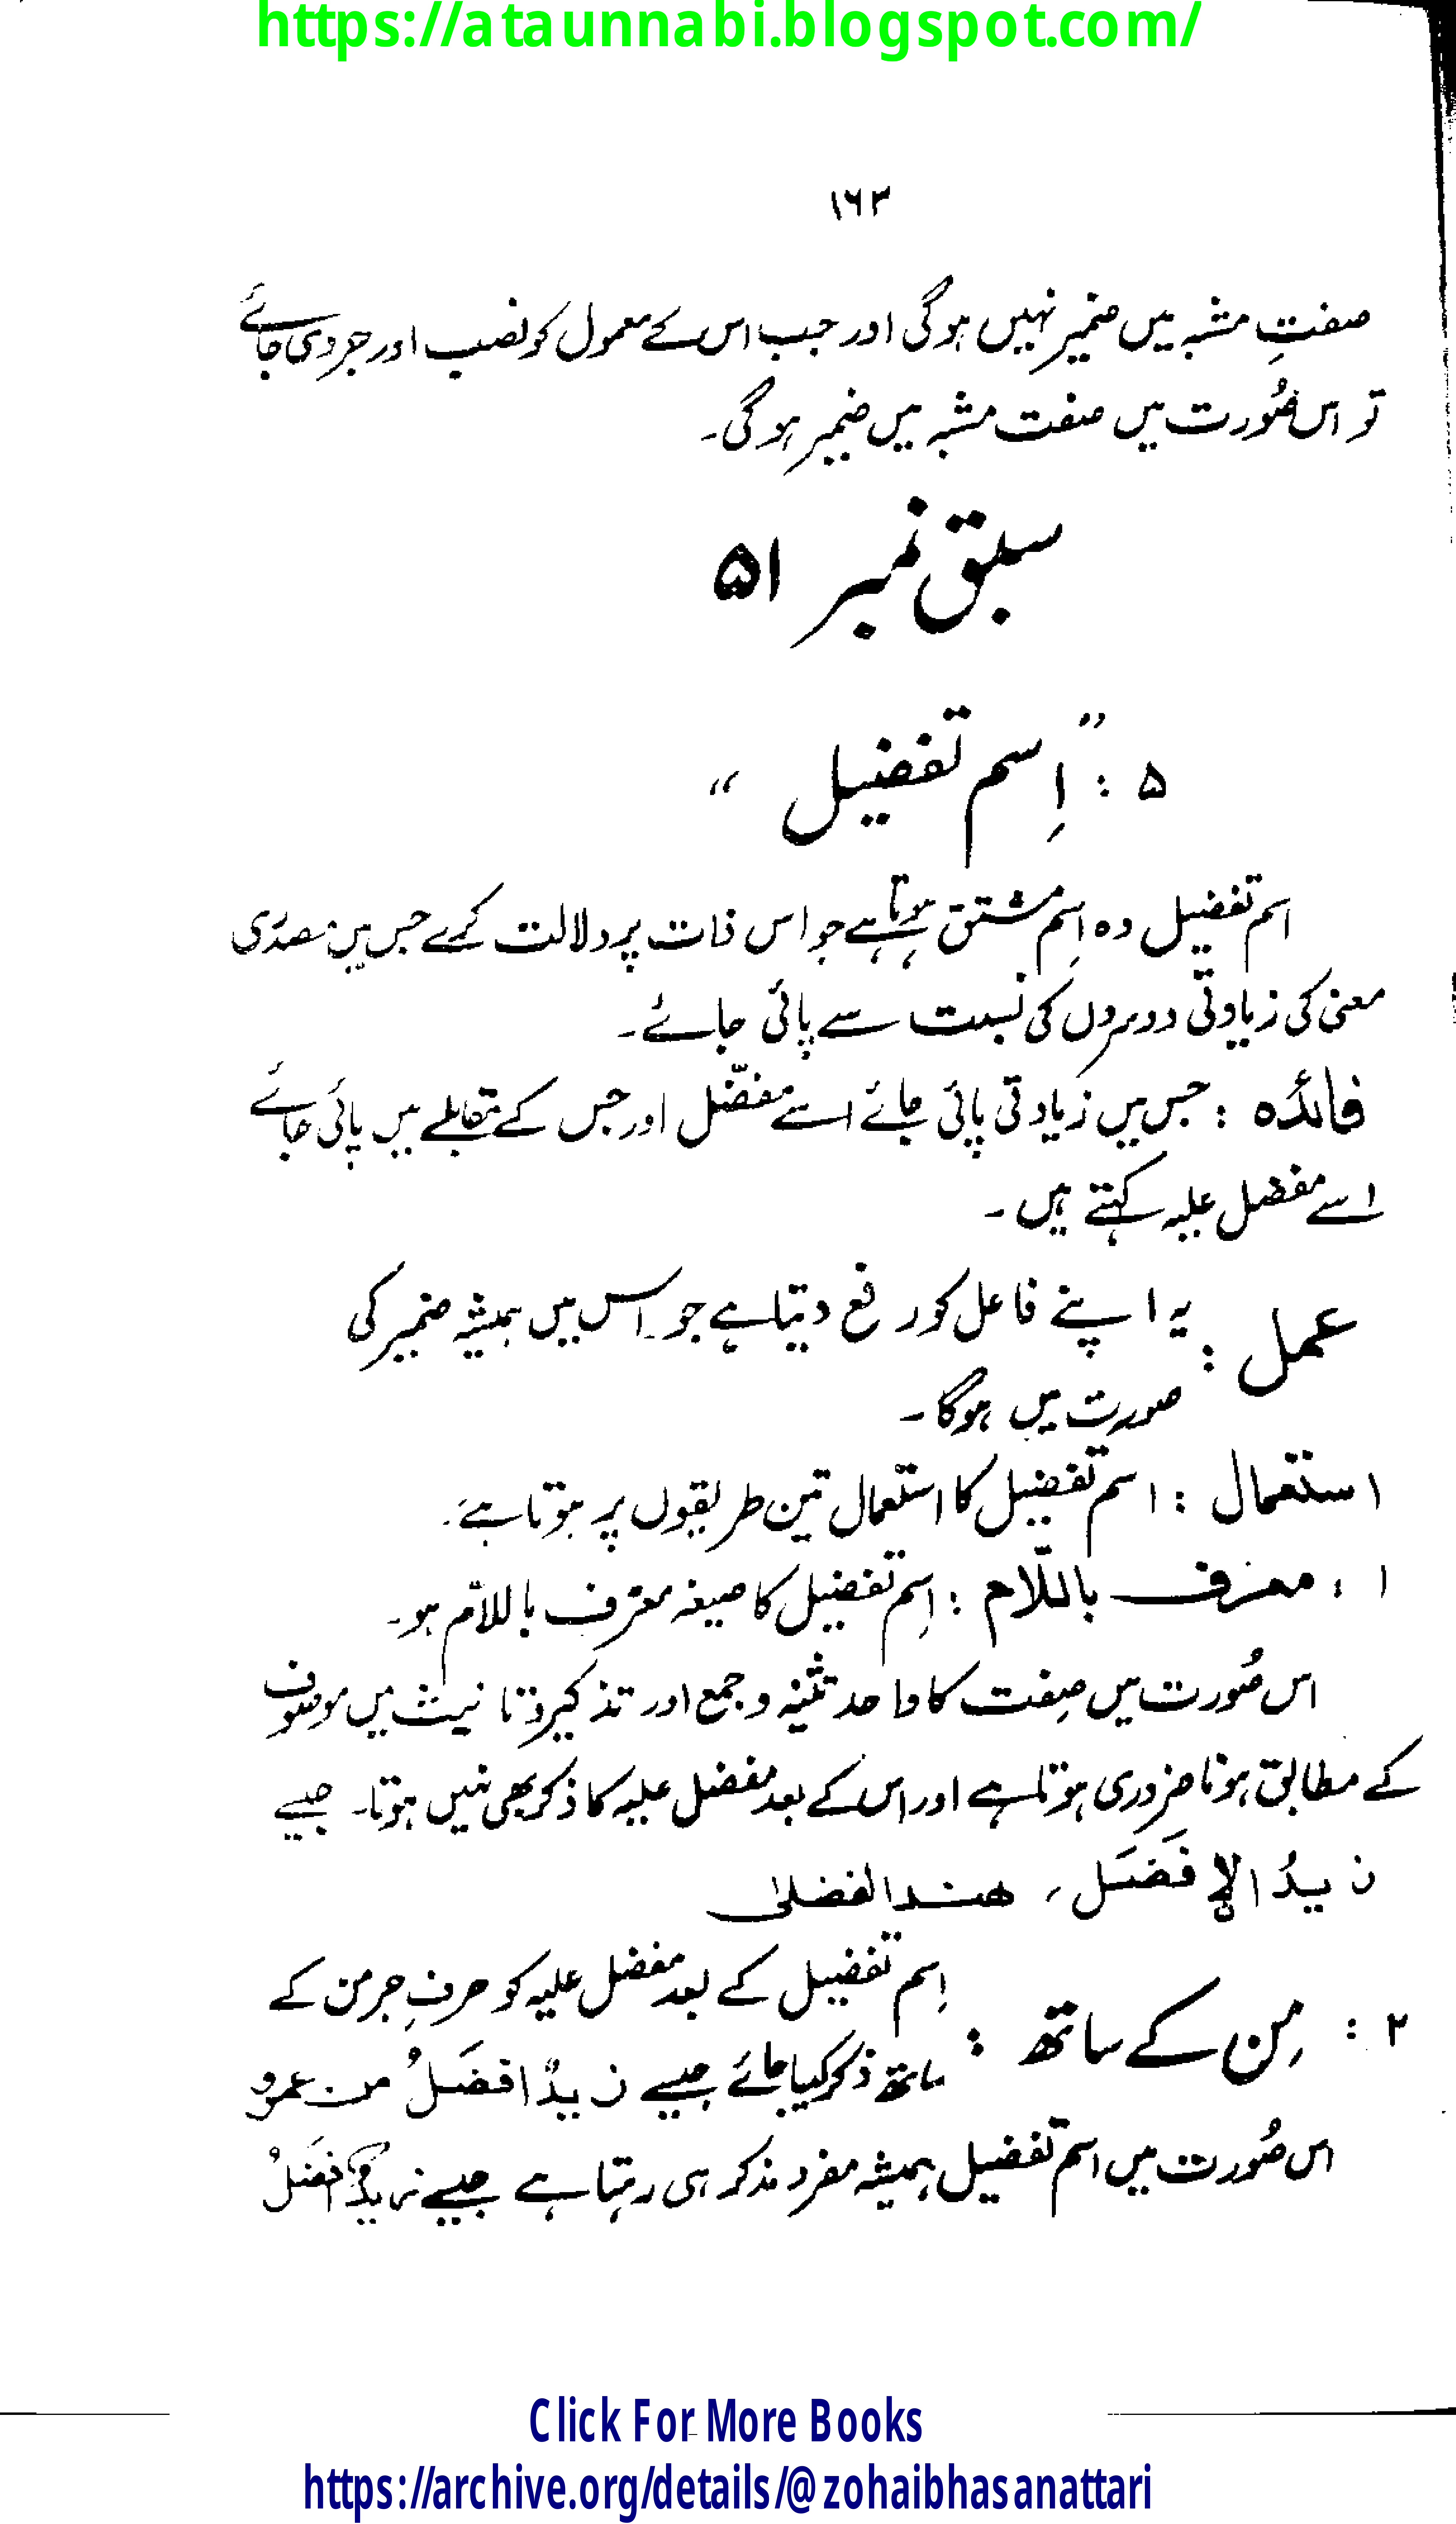 https://ataunnabi.blogspot.com/
۱۶۳
صفتِ مشبہ میں ضمیر نہیں ہوگی اور جب اس کے معمول کو نصب اور جر دی جائے
تو اس صُورت میں صفت مشبہ میں ضمیر ہوگی۔
سبق نمبر ۵۱
۵ : ”اِسم تفضیل“
اسم تفضیل وہ اسِم مشتق ہوتا ہے جو اس ذات پر دلالت کرے جس میں مصدری
معنی کی زیادتی دوسروں کی نسبت سے پائی جائے۔
فائدہ : جس میں زیادتی پائی جائے اسے مفضّل اور جس کے مقابلے میں پائی جائے
اسے مفضل علیہ کہتے ہیں۔
عمل : یہ اپنے فاعل کو رفع دیتا ہے جو اس میں ہمیشہ ضمیر کی
صورت میں ہوگا۔
استعمال : اسم تفضیل کا استعمال تین طریقوں پر ہوتا ہے۔
۱ : معرف باللّام : اِسم تفضیل کا صیغہ معرف باللاّم ہو۔
اس صُورت میں صِفت کا واحد تثنیہ و جمع اور تذکیر و تانیث میں موصوف
کے مطابق ہونا ضروری ہوتا ہے اور اس کے بعد مفضل علیہ کا ذکر بھی نہیں ہوتا۔ جیسے
زیدُ الافضَل، ھند الفضلیٰ
۲ : مِن کے ساتھ : اِسم تفضیل کے بعد مفضل علیہ کو حرفِ جر من کے
ساتھ ذکر کیا جائے جیسے زیدٌ افضَلُ من عمرو
اس صُورت میں اسم تفضیل ہمیشہ مفرد مذکر ہی رہتا ہے جیسے زیدٌ افضَلُ
Click For More Books
https://archive.org/details/@zohaibhasanattari